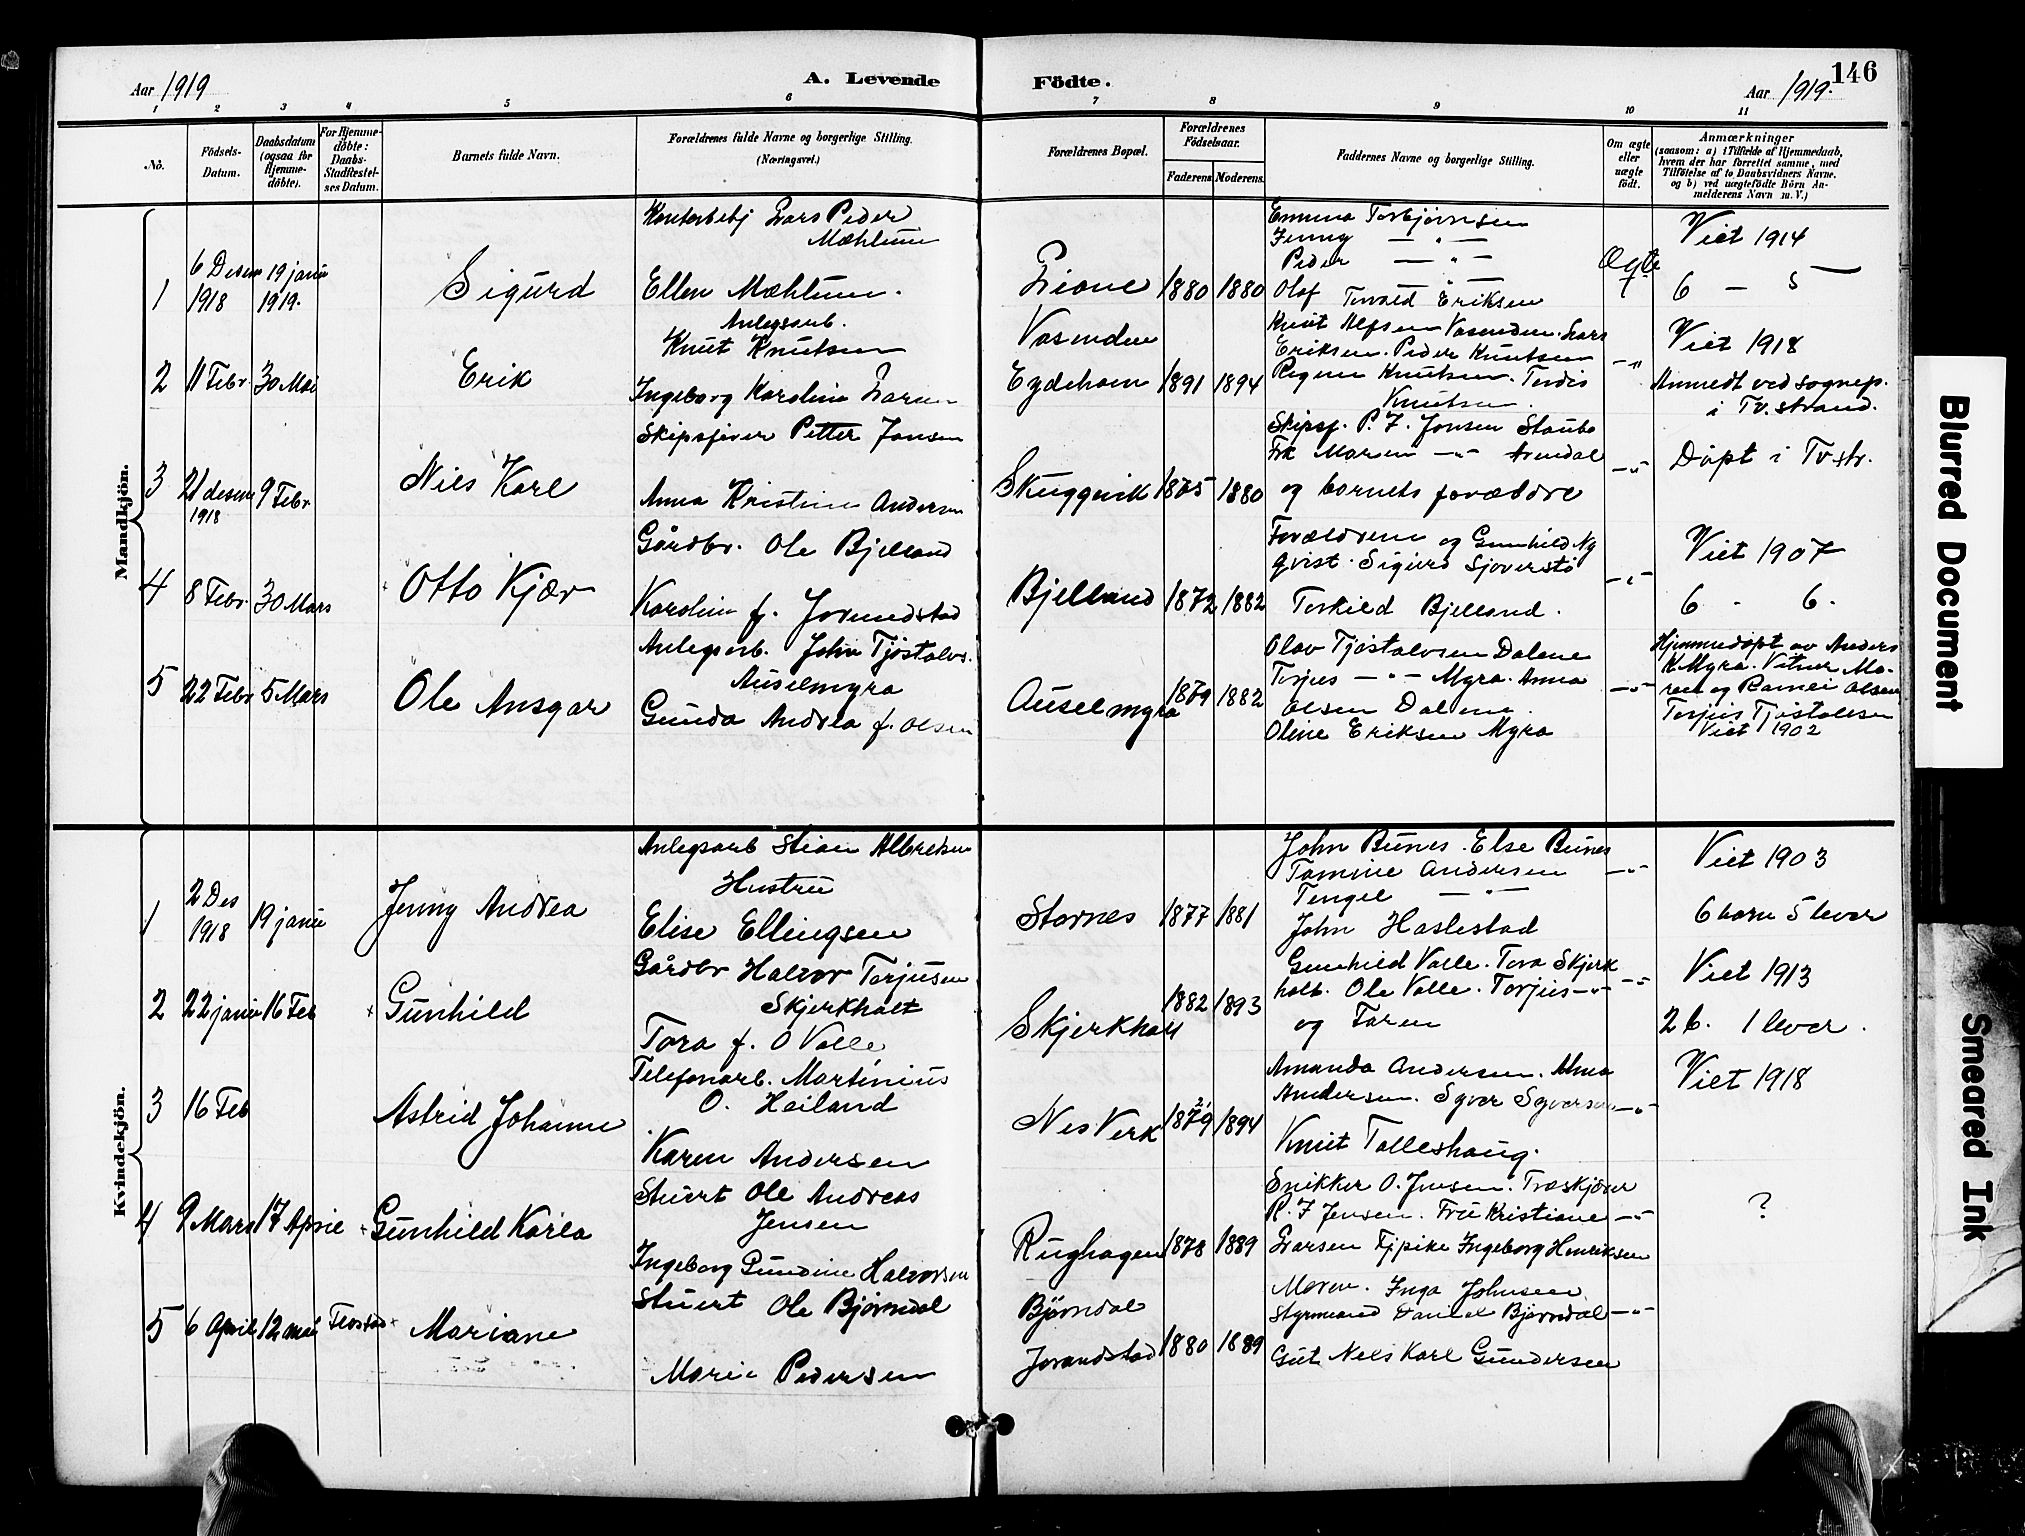 146
Aar 1919
A. Levende Födte.
Aar 1919.
1 2 3 4 5 6 7 8 9 10 11
No.
Födsels-Datum.
Daabsdatum (ogsaa for Hjemme-döbte).
For Hjemme-döbte: Daabs-Stadfestel-ses Datum.
Barnets fulde Navn.
Forældrenes fulde Navne og borgerlige Stilling. (Næringsvei.)
Forældrenes Bopæl.
Forældrenes Födselsaar.
Faderens Moderens.
Faddernes Navne og borgerlige Stilling.
Om ægte eller uægte födt.
Anmærkninger
(saasom: a) i Tilfælde af Hjemmedaab,
hvem der har forrettet samme, med
Tilföielse af to Daabsvidners Navne,
og b) ved uægtefödte Börn An-
melderens Navn m. V.)
Mandkjön.
1
6 Desem 1918
19 janu 1919.
Sigurd
Lars Peder
Mæhlum
Ellen Mæhlum.
Liane
1880 1880
Emma Torbjörnsen
Jenny — " —
Peder — " —
Olaf — " —
Torvald Eriksen
Ægte
Viet 1914
6 — 5
2
11 Febr
30 Mai
Erik
Anlegsarb.
Knut Knutsen
Ingeborg Karoline Larsen
Vasenden
Eydehavn
1891 1894
Knut Alfsen Vasenden. Lars
Eriksen. Peder Knutsen
Regine Knutsen. Tordis
Knutsen.
—"—
Viet 1918
Anmedt ved sognep.
i Tv.strand.
3
21 desem 1918
9 Febr
Niels Karl
Petter Jansen
Anna Kristine Andersen
Skuggevik
1880
P. F. Jonsen Staubo
Marsen —"— Arendal
og barnets forældre
—"—
Döpt i Tv.str.
4
8 Febr.
30 Mars
Otto Kjær
Gårdbr. Ole Bjelland
Karoline f. Jorundstad
Bjelland
1872 1882
Forældrene og Gunhild Ny
qvist. Sigurd Sjoverstö
Torkild Bjelland.
—"—
Viet 1907
6 - 6.
5
22 Febr
5 Mars
Ole Ansgar
Anlegsarb. John Tjöstolvs.
Auselmyra
Gunda Andrea f. Olsen
Auselmyra
1879 1882
Olav Tjöstolvsen Dalene
Torjus —"— Myra. Anna
Olsen Dalene.
Oline Eriksen Myra
—"—
Hjemmedöpt av Anders
K. Myra. Vitner Ma-
ren og Olsen
Torjus Tjöstolvsen
Viet 1902
Kvindekjön.
1
2 Des 1918
19 janu
Jenny Andrea
Anlegsarb Stian Albretsen
Hustru
Elise Ellingsen
Stornes
1877 1881
John Bunes. Else Bunes
Tomine Andersen
Tengel — " —
John Haslestad
—"—
Viet 1903
6 barn 5 lever
2
22 janu
16 Feb
× Gunhild
Gårdbr Halvor Torjusen
Skjerkholt
Tora f. O Valle
Skjerkholt
1882 1893
Gunhild Valle. Tora Skjerk
holt. Ole Valle. Torjus —"—
og Taren
—"—
Viet 1913
2 b. 1 lever.
3
16 Feb
Astrid Johanne
Telefonarb. Martinius
O. Heiland
Karen Andersen
Nes Verk
1879 1894
Amanda Andersen. Alma
Andersen. Syver Syversen
Knut Talleshaug.
—"—
Viet 1918
4
9 Mars
17 April
Gunhild Karla
Stuert Ole Andreas
Jensen
Ingeborg Gundine Halvorsen
Rughagen
1878 1889
Snikker O. Jensen. Træskjærer
R. F Jensen. Fru Kristiane
Larsen Ingeborg Henriksen
—"—
?
5
6 April
12 mai
Mariane
Stuert Ole Björndal
Marie Pedersen
Björndal
Jorandstad
1880 1889
Maren. Inga Johnsen
Styrmand Daniel Björndal
Gut Nels Karl Gundersen
—"—
Blurred Document
Smeared Ink